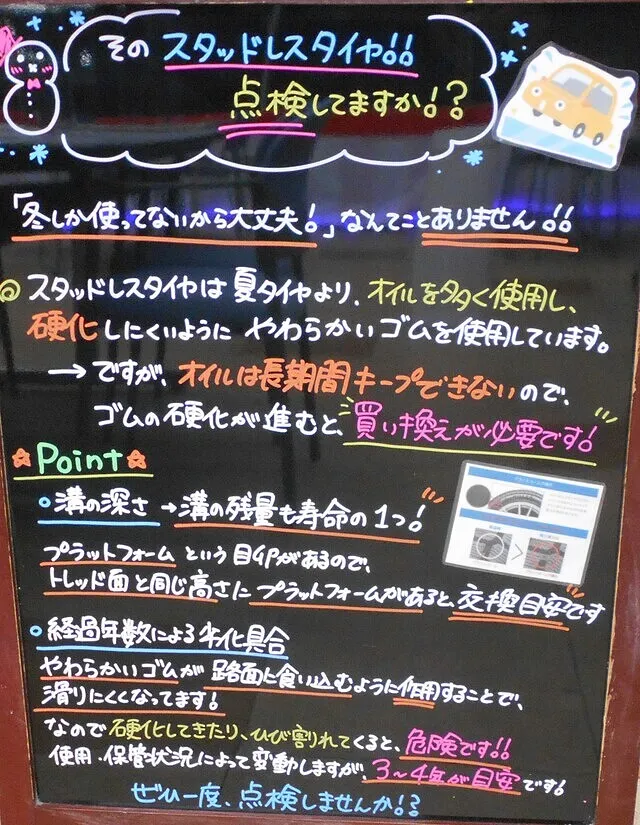 その スタッドレスタイヤ!!
点検してますか!?
「冬しか使ってないから大丈夫!」なんてことありません!!
◎スタッドレスタイヤは夏タイヤより、オイルを多く使用し、
硬化しにくいように やわらかいゴムを使用しています。
→ですが、オイルは長期間キープできないので、
ゴムの硬化が進むと、買い換えが必要です!
☆Point☆
○溝の深さ →溝の残量も寿命の1つ!
プラットフォームという目印があるので、
トレッド面と同じ高さにプラットフォームがあると、交換目安です
○経過年数による劣化具合
やわらかいゴムが 路面に食い込むように作用することで、
滑りにくくなってます!
なので硬化してきたり、ひび割れてくると、危険です!!
使用・保管状況によって変動しますが、3～4年が目安です!
ぜひ一度、点検しませんか!?